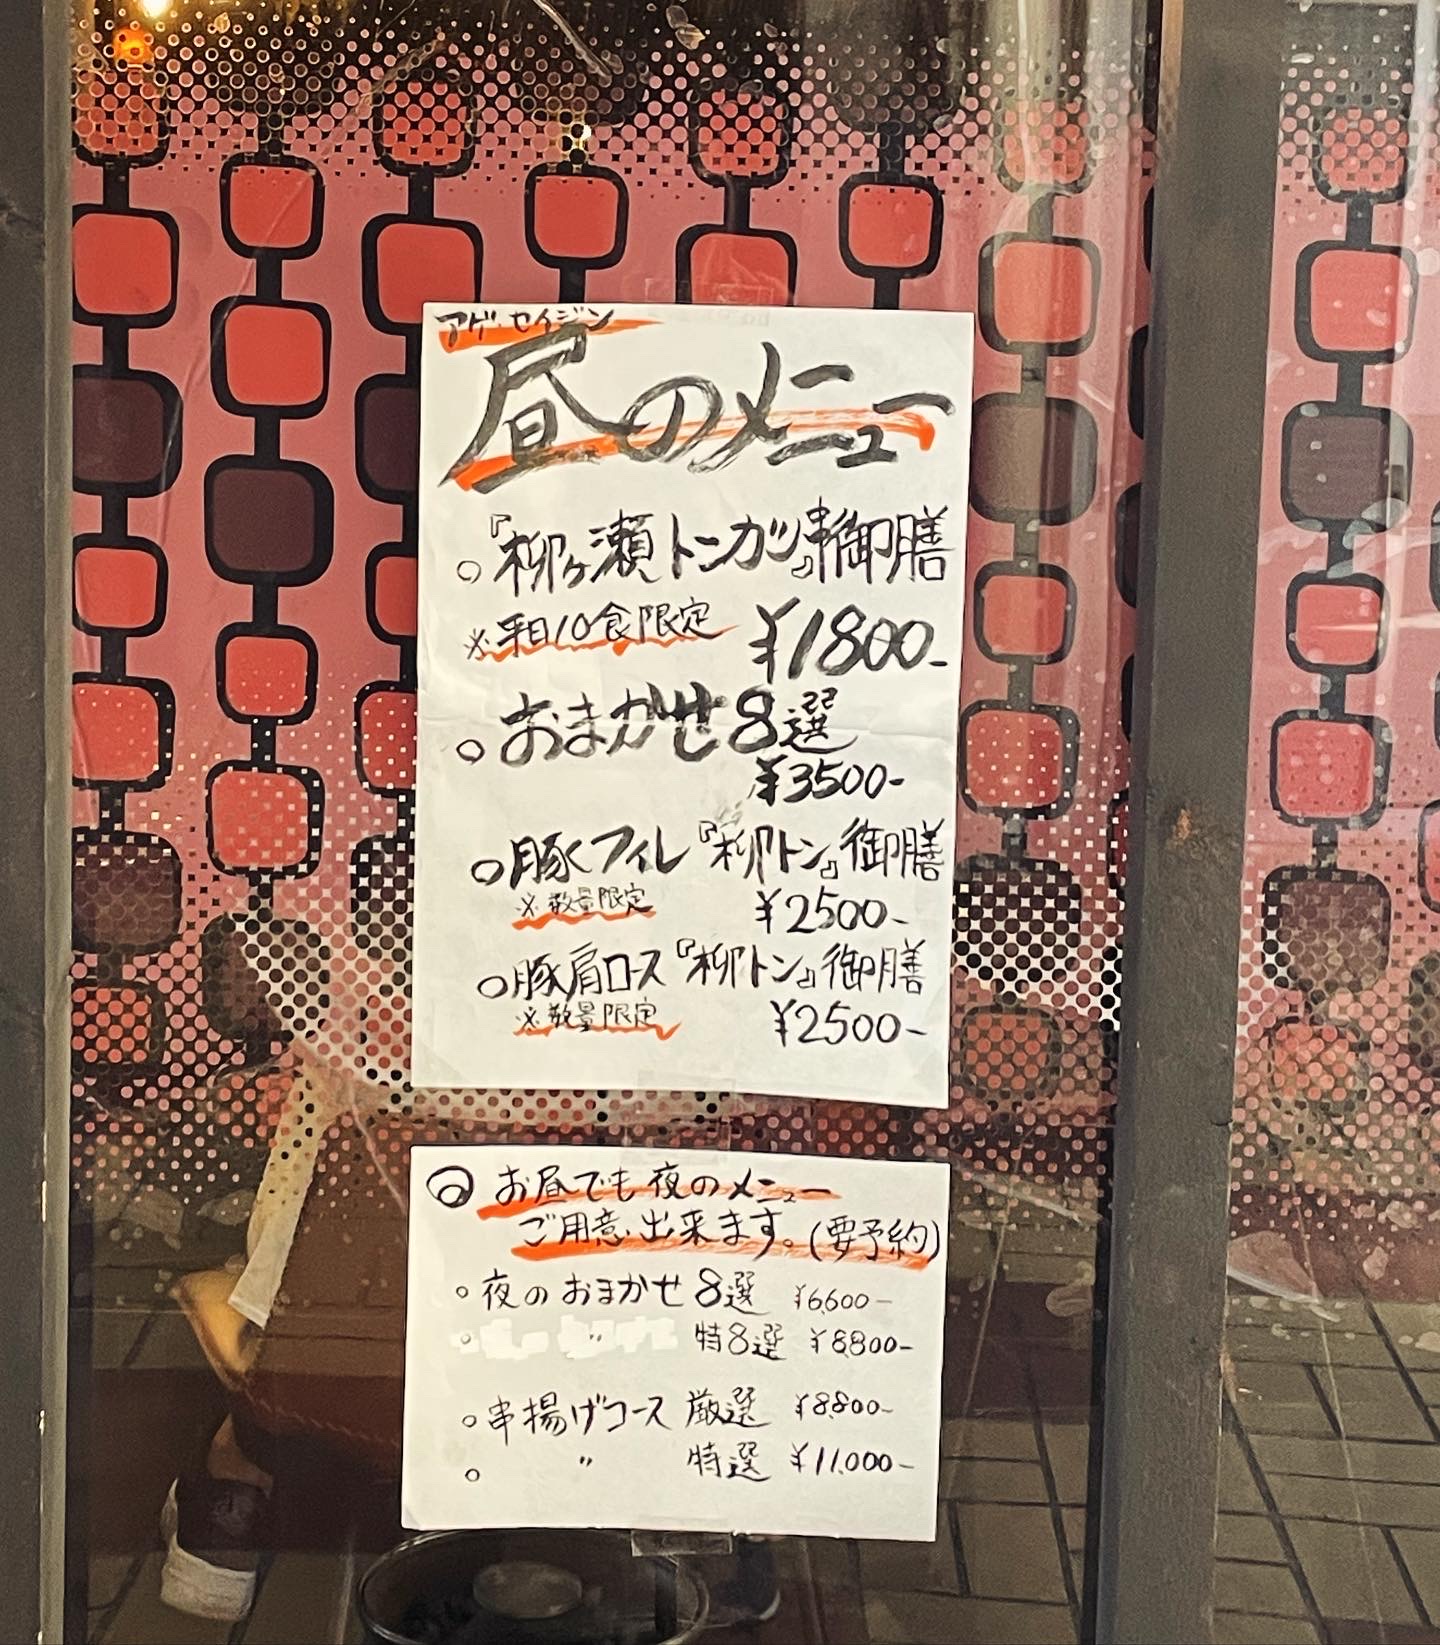 アゲ・セイジン
昼のメニュー
○『柳ヶ瀬トンカツ』串御膳
※平日10食限定 ¥1800-
○おまかせ8選
¥3500-
○豚フィレ『柳トン』御膳
※数量限定 ¥2500-
○豚肩ロース『柳トン』御膳
※数量限定 ¥2500-
◎お昼でも夜のメニュー
ご用意出来ます。(要予約)
○夜のおまかせ8選 ¥6,600-
○ 〃 特8選 ¥8,800-
○串揚げコース 厳選 ¥8,800-
○ 〃 特選 ¥11,000-